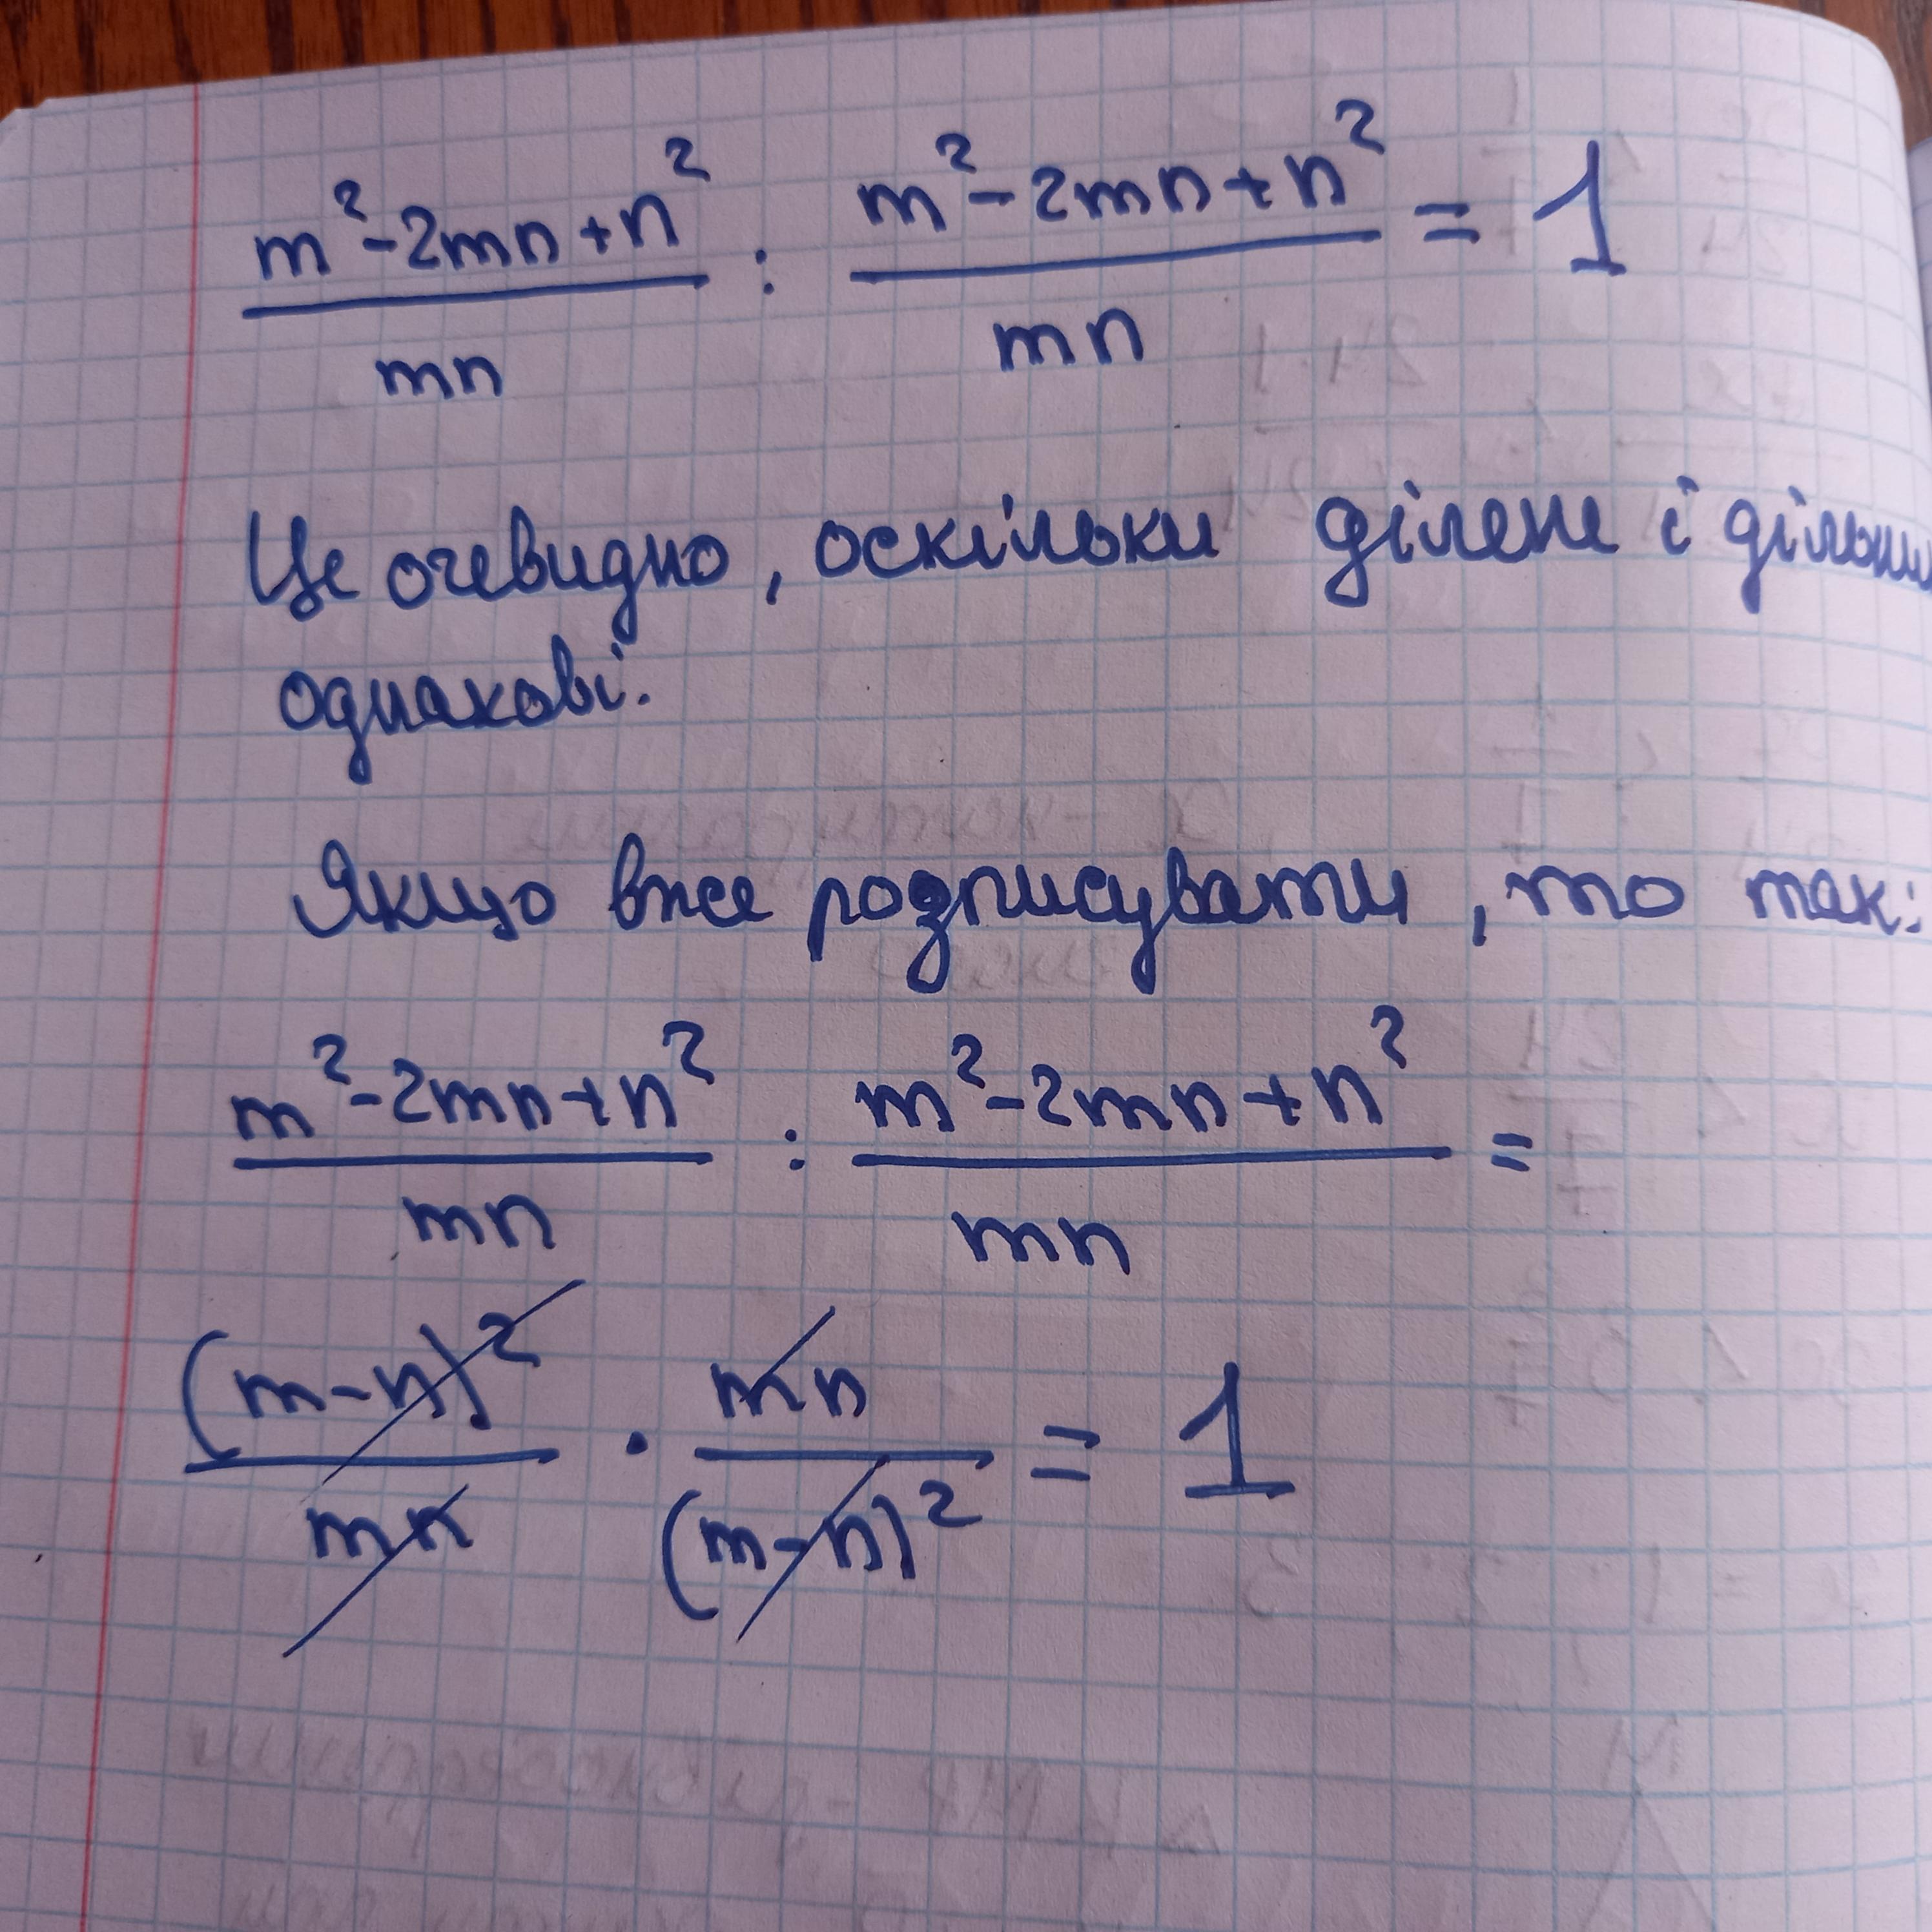 m² - 2mn + n² / mn : m² - 2mn + n² / mn = 1
Це очевидно, оскільки ділене і
однакові.
Якщо вже розписувати, то так:
m² - 2mn + n² / mn : m² - 2mn + n² / mn =
(m-n)² / mn · mn / (m-n)² = 1